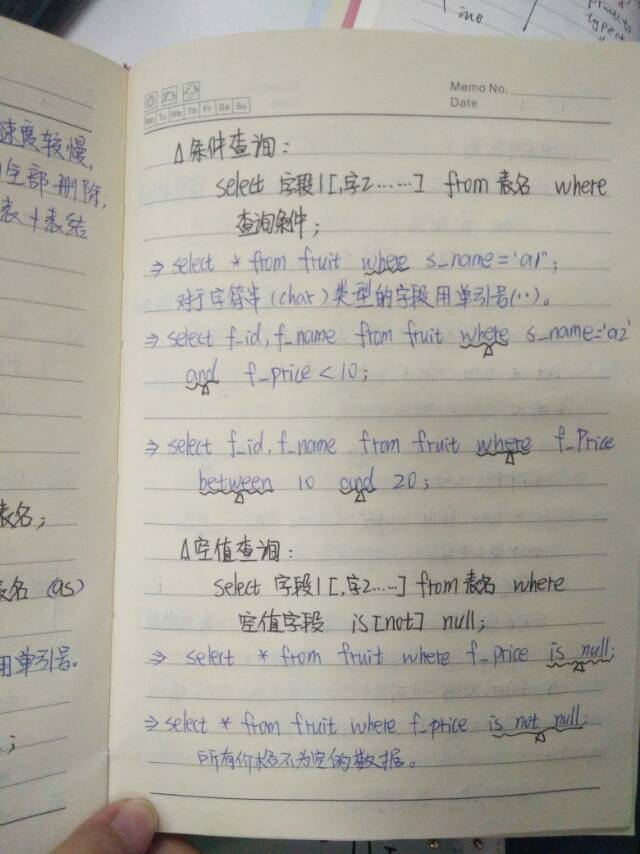 ino
typect
Memo No.
Date
Mo Tu We Th Fr Sa Su
速度较慢,
全部删除,
表+表结
表名;
表名 (as)
用单引号。
△条件查询:
select 字段1[,字2……] from 表名 where
查询条件;
⇒ select * from fruit where s_name='a1';
对于字符串(char)类型的字段用单引号(' ')。
⇒ select f_id, f_name from fruit where s_name='a2'
and f_price < 10;
⇒ select f_id, f_name from fruit where f_Price
between 10 and 20;
△空值查询:
select 字段1[,字2……] from 表名 where
空值字段 is [not] null;
⇒ select * from fruit where f_price is null;
⇒ select * from fruit where f_price is not null;
所有价格不为空的数据。